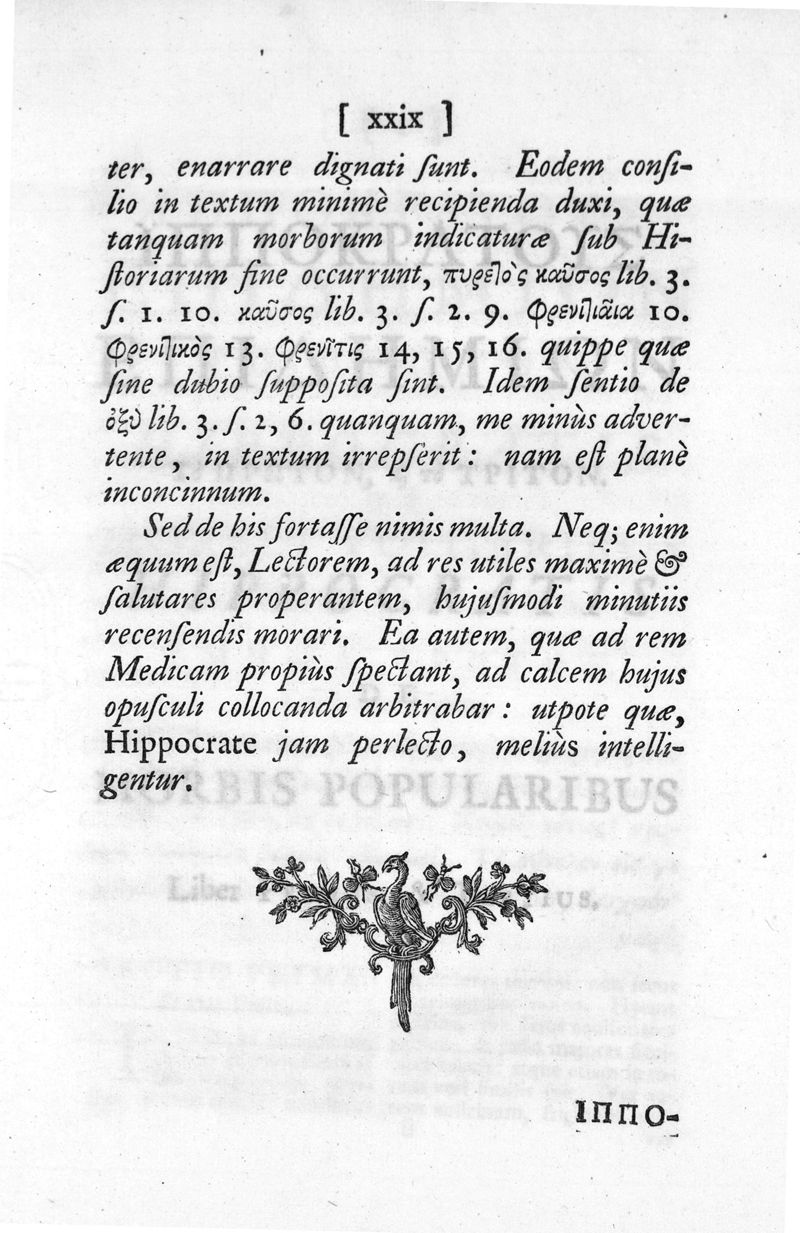 [ xxix ]
ter, enarrare dignati ſunt. Eodem conſi-
lio in textum minimè recipienda duxi, quæ
tanquam morborum indicaturæ ſub Hi-
ſtoriarum fine occurrunt, πυρετὸς καῦσος lib. 3.
ſ. 1. 10. καῦσος lib. 3. ſ. 2. 9. φρενιτιαῖα 10.
φρενιτικὸς 13. φρενῖτις 14, 15, 16. quippe quæ
ſine dubio ſuppoſita ſint. Idem ſentio de
ὀξὺ lib. 3. ſ. 2, 6. quanquam, me minùs adver-
tente, in textum irrepſerit: nam eſt planè
inconcinnum.
Sed de his fortaſſe nimis multa. Neq; enim
æquum eſt, Lectorem, ad res utiles maximè &
ſalutares properantem, hujuſmodi minutiis
recenſendis morari. Ea autem, quæ ad rem
Medicam propiùs ſpectant, ad calcem hujus
opuſculi collocanda arbitrabar: utpote quæ,
Hippocrate jam perlecto, meliùs intelli-
gentur.
ΙΠΠΟ-